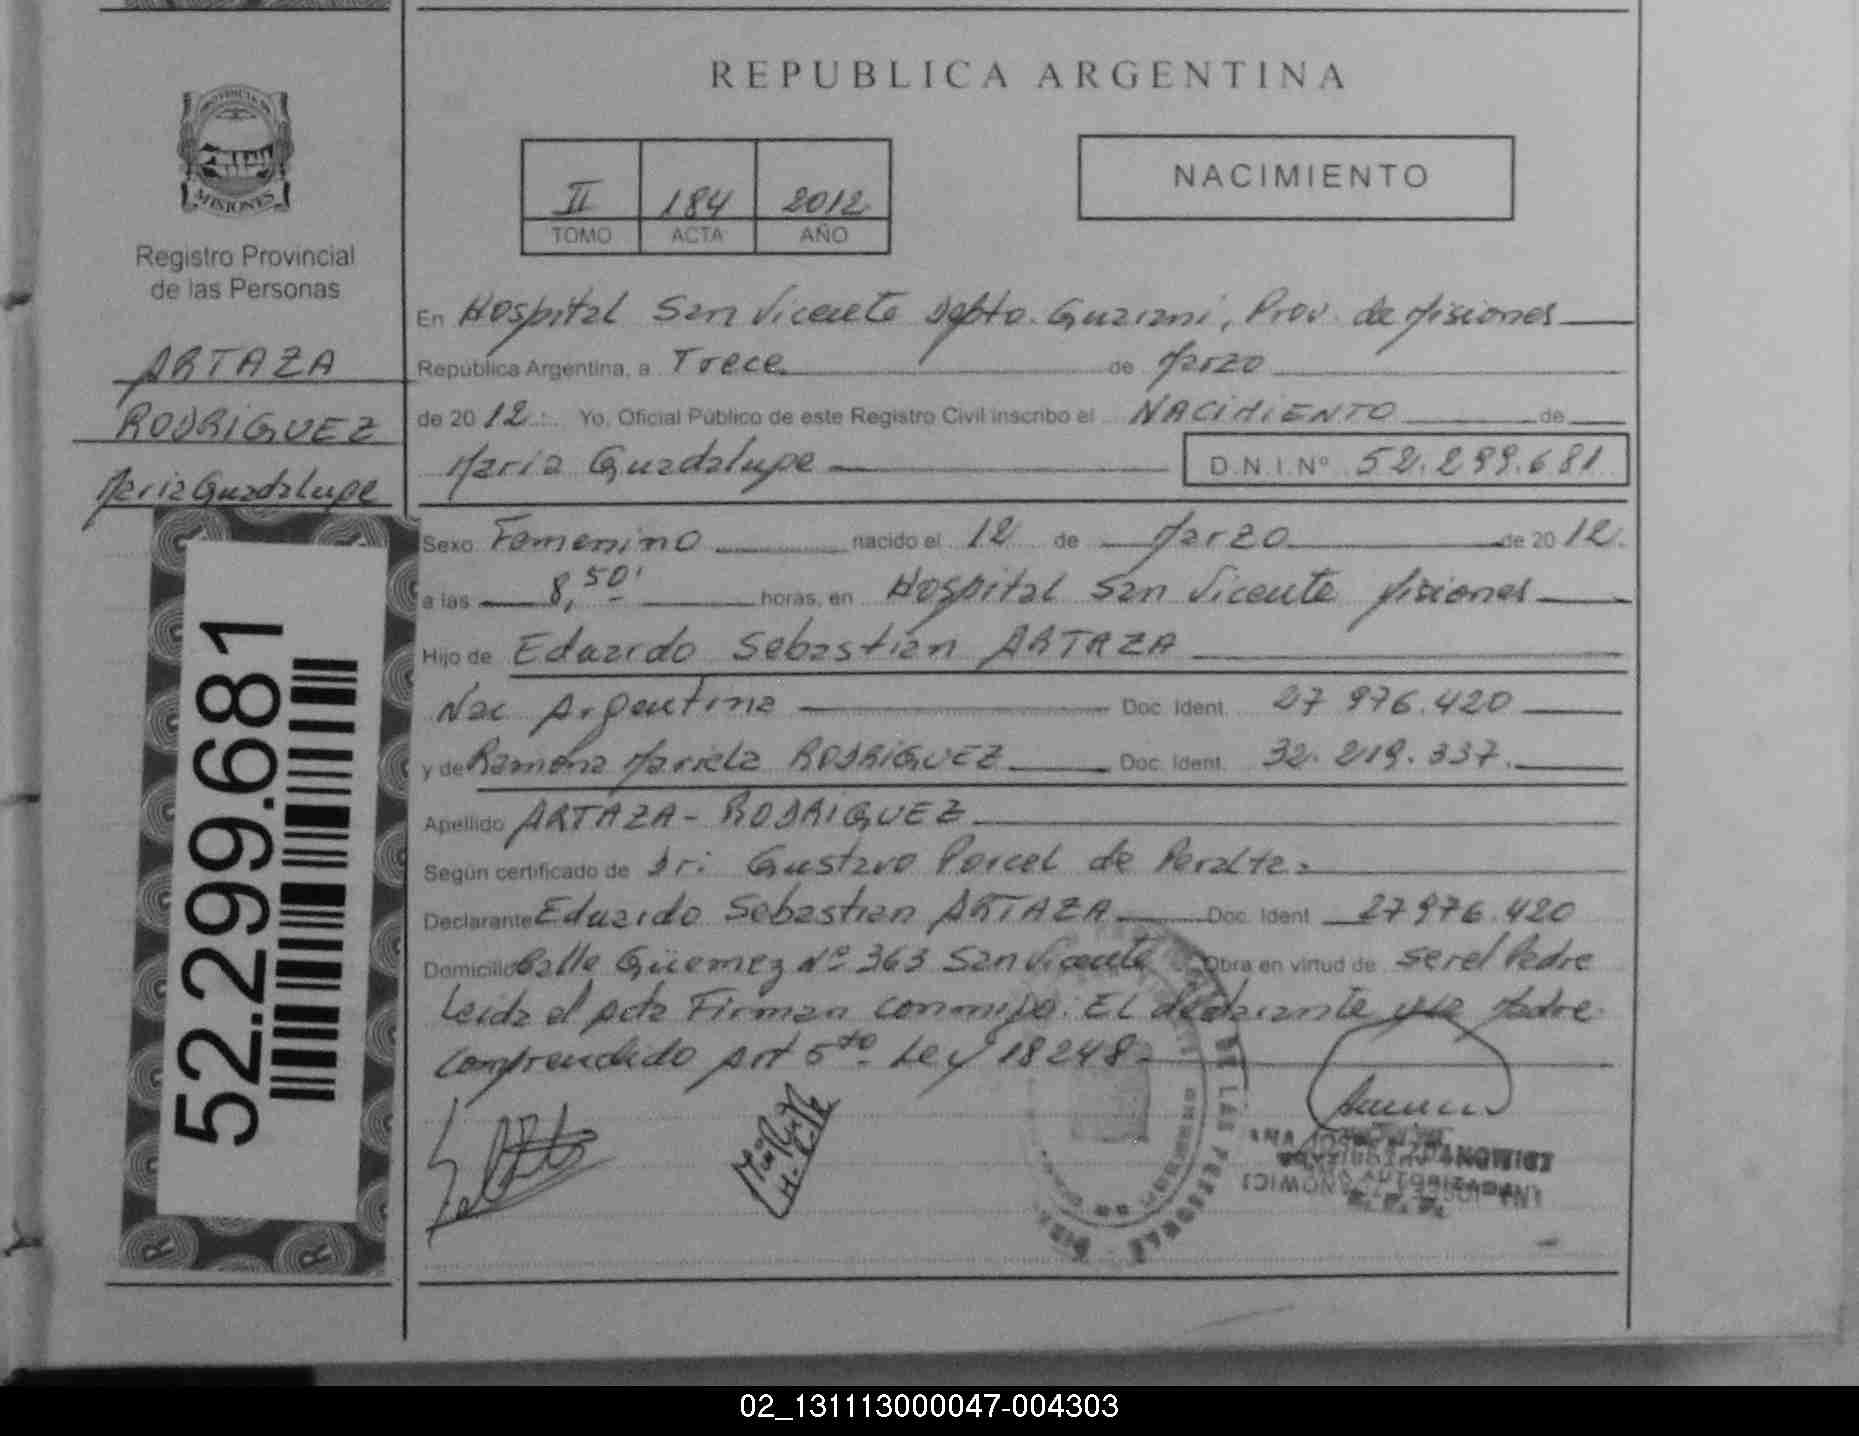 REPUBLICA ARGENTINA
PROVINCIA DE
MISIONES
Registro Provincial
de las Personas
ARTAZA
RODRIGUEZ
Maria Guadalupe
52.299.681
II 184 2012
TOMO ACTA AÑO
NACIMIENTO
En Hospital San Vicente Depto. Guarani, Prov. de Misiones
República Argentina, a Trece de Marzo
de 2012. Yo, Oficial Público de este Registro Civil inscribo el NACIMIENTO de
Maria Guadalupe D.N.I.Nº 52.299.681
Sexo Femenino nacido el 12 de Marzo de 2012.
a las 8,50' horas, en Hospital San Vicente Misiones
Hijo de Eduardo Sebastian ARTAZA
Nac Argentina Doc. Ident. 27 976.420
y de Ramona Mariela RODRIGUEZ Doc. Ident. 32.219.337.
Apellido ARTAZA - RODRIGUEZ
Según certificado de Dr: Gustavo Porcel de Peralta.
Declarante Eduardo Sebastian ARTAZA Doc. Ident 27976.420
Domicilio Calle Güemez Nº 363 San Vicente Obra en virtud de ser el Padre
Leida el acta Firman conmigo. El declarante y la Madre
comprendido Art 5to Ley 18248.
DE LAS PERSONAS
02_131113000047-004303